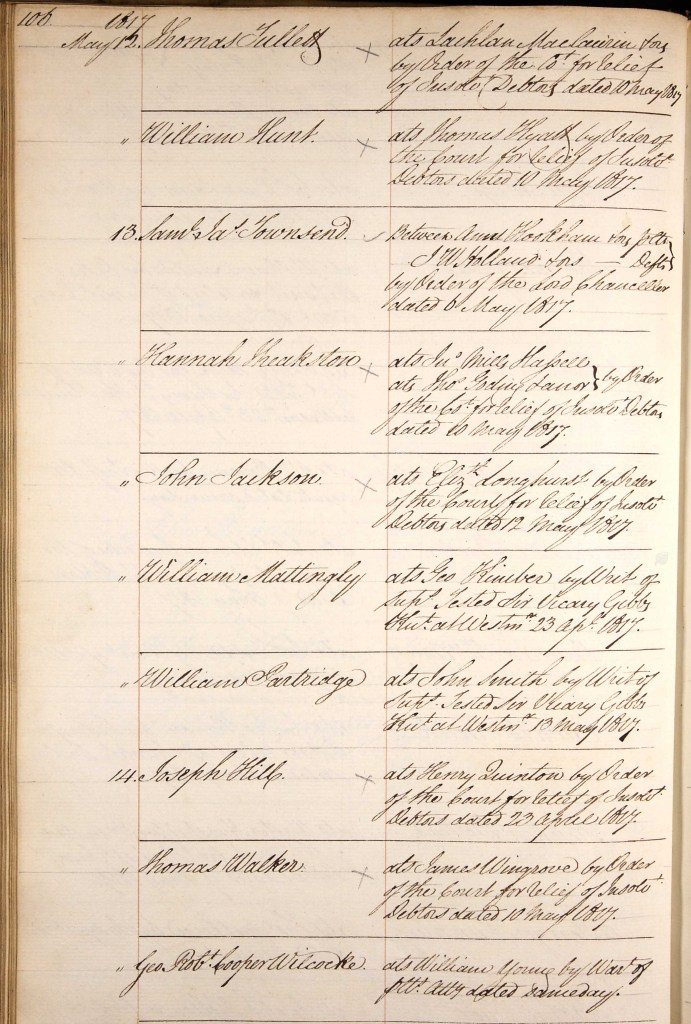 106. 1817
May 12. Thomas Tullett + ats Lachlan Maclairin & ors
by Order of the Cot. for relief
of Insolt. Debtors dated 10 May 1817
" William Hunt. + ats Thomas Hyatt by Order of
the Court for relief of Insolvt.
Debtors dated 10 May 1817.
13. Saml. Jas. Townsend. Between Anne Hookham & ors plts
J W Holland & ors — Defts
by Order of the Lord Chancellor
dated 6 May 1817.
" Hannah Theakston + ats Jno. Mills Hassell
ats Thos. & anor } by Order
of the Cot. for relief of Insolvt. Debtors
dated 10 May 1817.
" John Jackson. + ats Elizth. Longhurst by Order
of the Court for relief of Insolvt.
Debtors dated 12 May 1817.
" William Mattingly ats Geo Kimber by Writ of
Sups. Tested Sir Vicary Gibbs
Knt. at Westmr. 23 Apl. 1817.
" William Partridge ats John Smith by Writ of
Sups. Tested Sir Vicary Gibbs
Knt. at Westmr. 13 May 1817.
14. Joseph Hill. + ats Henry Quinton by Order
of the Court for relief of Insolvt.
Debtors dated 23 April 1817.
" Thomas Walker + ats James Wingrove by Order
of the Court for relief of Insolvt.
Debtors dated 10 May 1817.
" Geo. Robt. Cooper Wilcocke. ats William Young by Wart. of
plts. Atty dated same day.